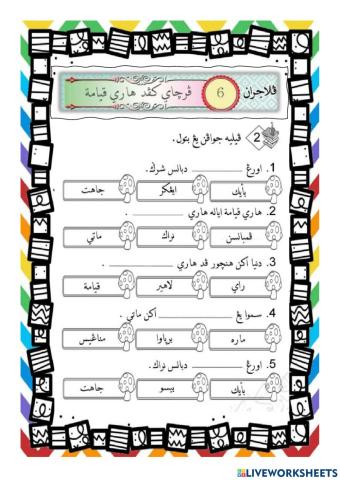 ڤلاجرن : 6 ڤرچاي کڤد هاري قيامة
2 ڤيليه جواڤن يڠ بتول.
1. اورڠ ________ دبالس شرݢ.
بأيك ايڤکر جاهت
2. هاري قيامة اياله هاري ________ .
ڤمبالسن نراك ماتي
3. دنيا اکن هنچور ڤد هاري ________ .
راي لاهير قيامة
4. سموا يڠ ________ اکن ماتي .
ماره برڽاوا مناڠيس
5. اورڠ ________ دبالس نراك.
بأيك بيسو جاهت
LIVEWORKSHEETS